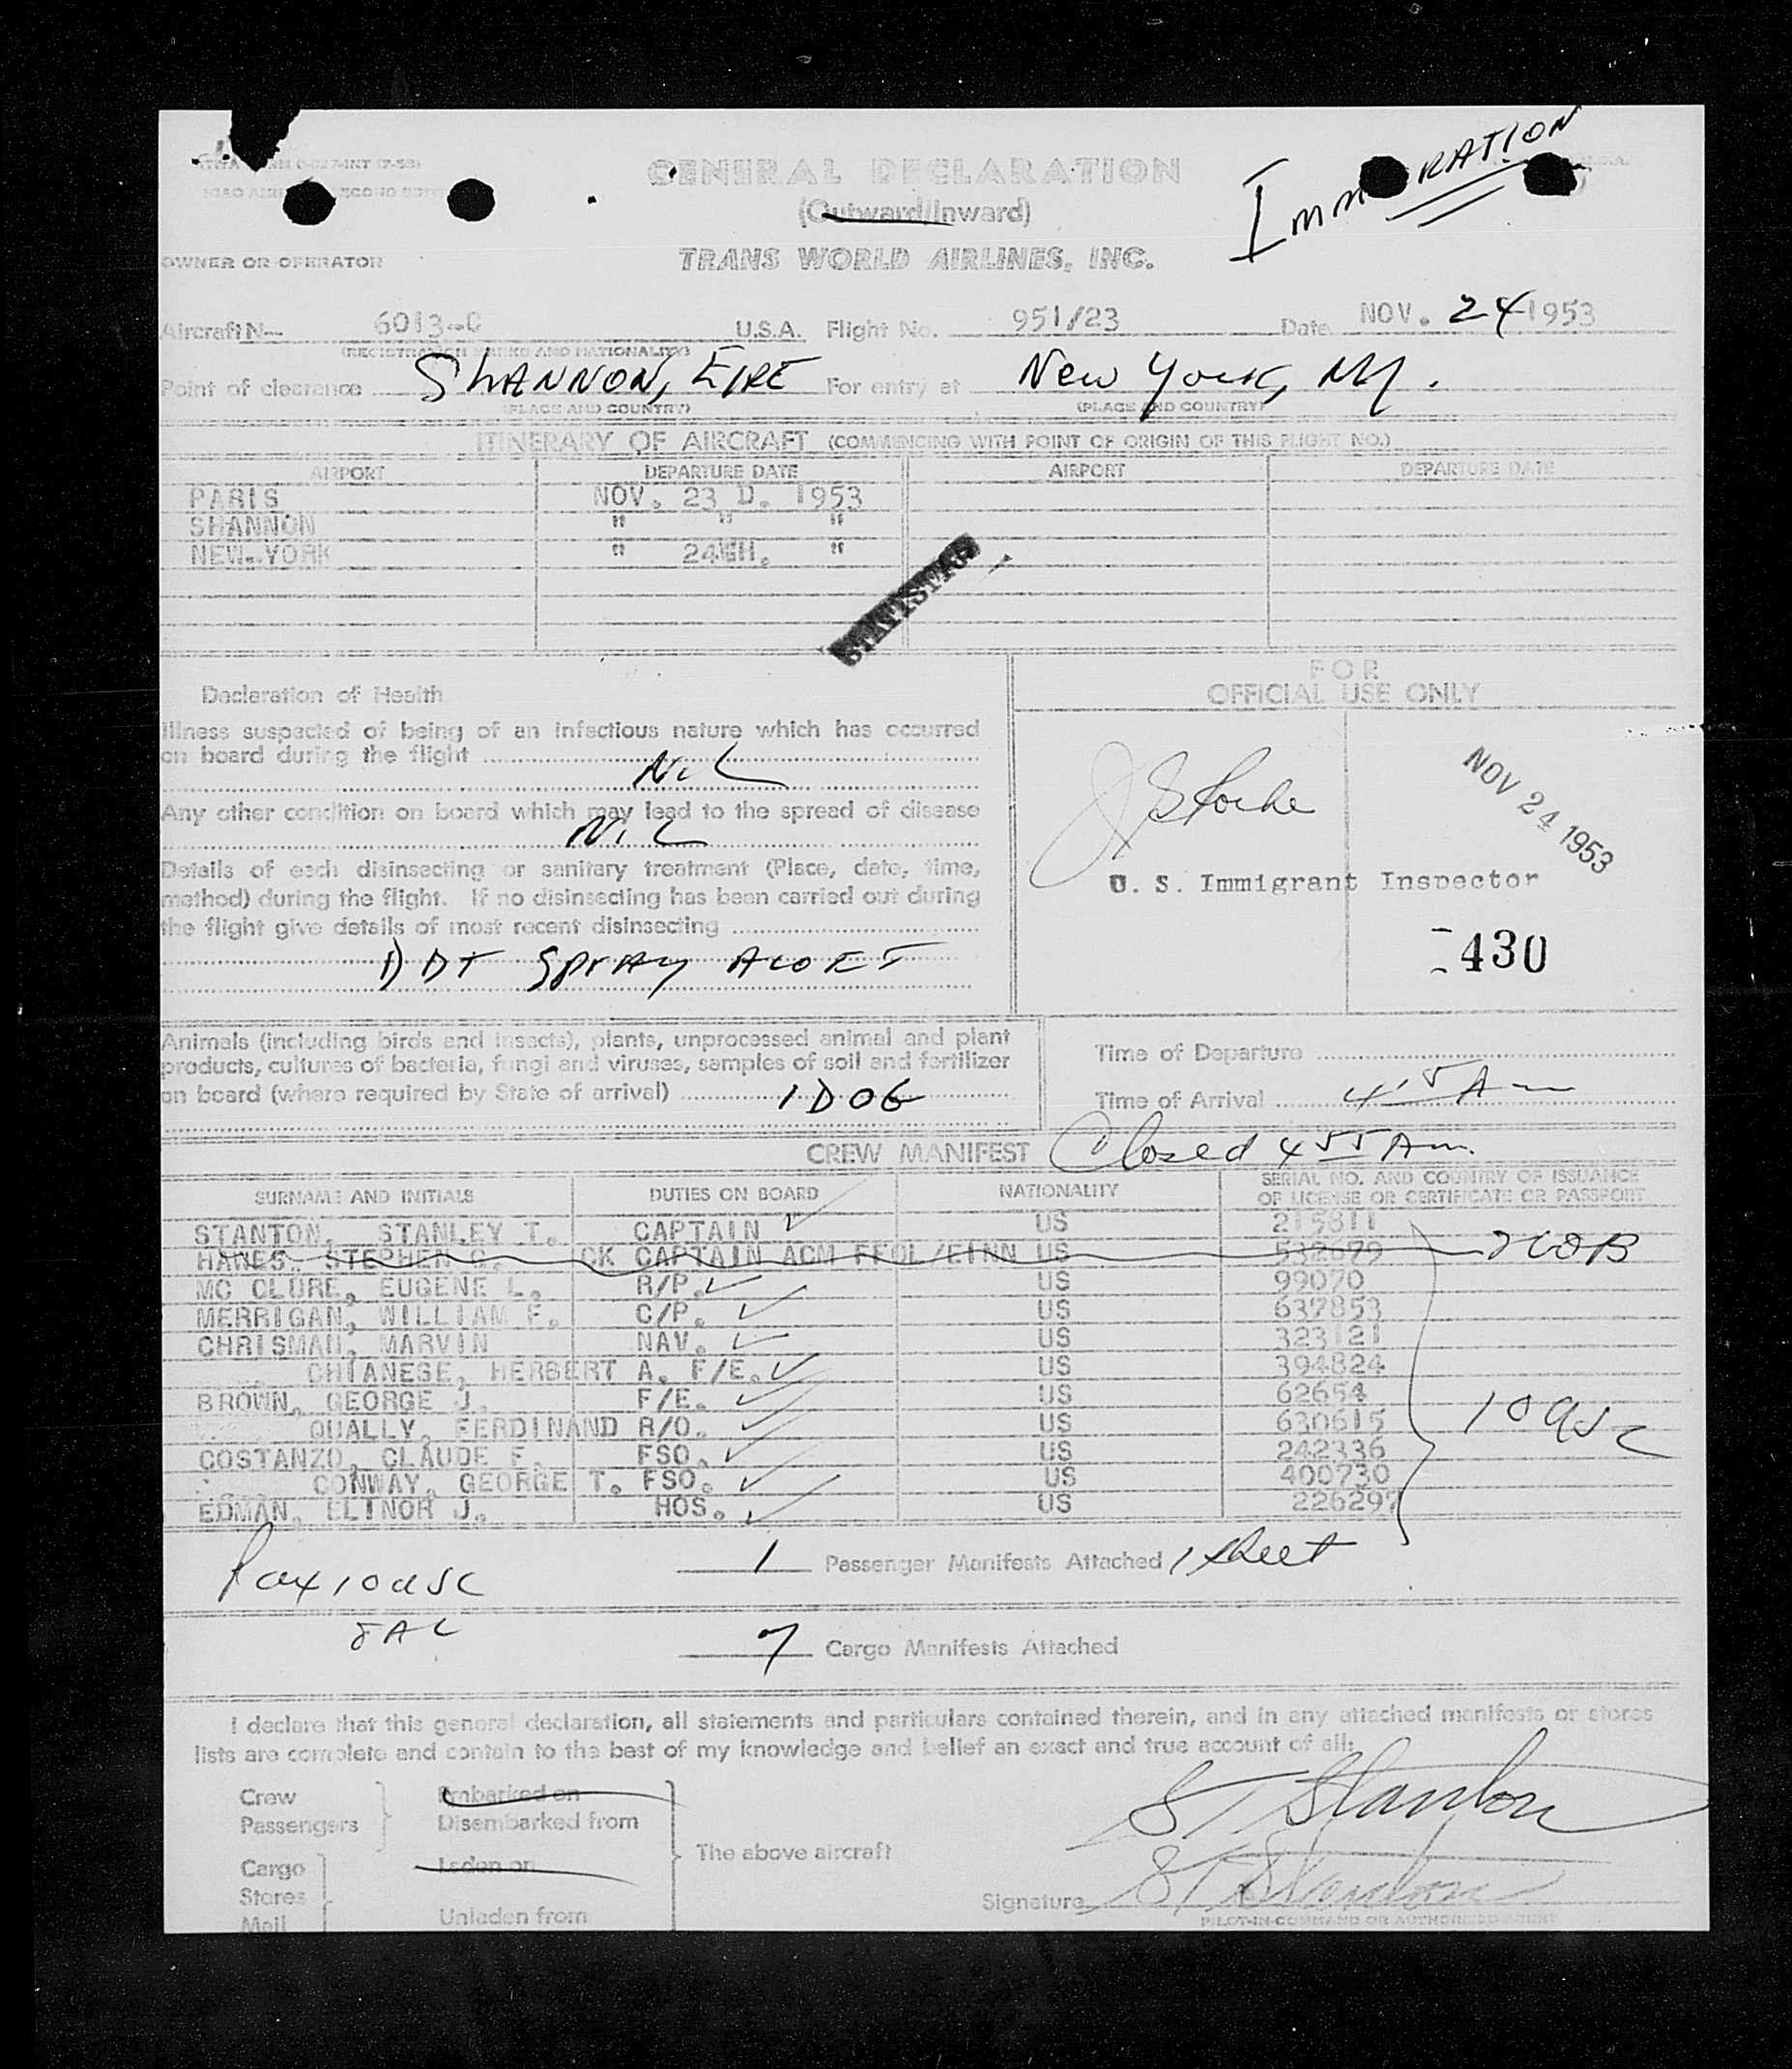 GENERAL DECLARATION
(Outward/Inward)
IMMIGRATION
OWNER OR OPERATOR TRANS WORLD AIRLINES, INC.
Aircraft N— 6013-C U.S.A. Flight No. 951/23 Date NOV. 24 1953
(REGISTRATION MARKS AND NATIONALITY)
Point of clearance SHANNON, EIRE For entry at New York, NY.
(PLACE AND COUNTRY) (PLACE AND COUNTRY)
ITINERARY OF AIRCRAFT (COMMENCING WITH POINT OF ORIGIN OF THIS FLIGHT NO.)
AIRPORT DEPARTURE DATE AIRPORT DEPARTURE DATE
PARIS NOV. 23 D. 1953
SHANNON " " "
NEW-YORK " 24 "
STATISTICS
Declaration of Health
Illness suspected of being of an infectious nature which has occurred
on board during the flight
NiL
Any other condition on board which may lead to the spread of disease
NiL
Details of each disinsecting or sanitary treatment (Place, date, time,
method) during the flight. If no disinsecting has been carried out during
the flight give details of most recent disinsecting
DDT SPRAY
FOR
OFFICIAL USE ONLY
NOV 24 1953
U. S. Immigrant Inspector
430
Animals (including birds and insects), plants, unprocessed animal and plant
products, cultures of bacteria, fungi and viruses, samples of soil and fertilizer
on board (where required by State of arrival) 1 DOG
Time of Departure
Time of Arrival
CREW MANIFEST Closed 455 Am.
SURNAME AND INITIALS DUTIES ON BOARD NATIONALITY SERIAL NO. AND COUNTRY OF ISSUANCE
OF LICENSE OR CERTIFICATE OR PASSPORT
STANTON, STANLEY T. CAPTAIN US 215811
HAWES, STEPHEN G. CK CAPTAIN ACM US 532679
MC CLURE, EUGENE L. R/P. US 99070
MERRIGAN, WILLIAM F. C/P. US 637853
CHRISMAN, MARVIN NAV. US 323121
CHIANESE, HERBERT A. F/E. US 394824
BROWN, GEORGE J. F/E. US 62654
QUALLY, FERDINAND R/O. US 630615
COSTANZO, CLAUDE F. FSO. US 242336
CONWAY, GEORGE T. FSO. US 400730
EDMAN, ELINOR J. HOS. US 226297
10 USC
1 Passenger Manifests Attached 1 sheet
Pax 10 USC
8 AL
7 Cargo Manifests Attached
I declare that this general declaration, all statements and particulars contained therein, and in any attached manifests or stores
lists are complete and contain to the best of my knowledge and belief an exact and true account of all:
Crew
Passengers
Embarked on
Disembarked from
Cargo
Stores
Mail
Laden on
Unladen from
The above aircraft
ST Stanton
Signature ST Stanton
PILOT-IN-COMMAND OR AUTHORISED AGENT